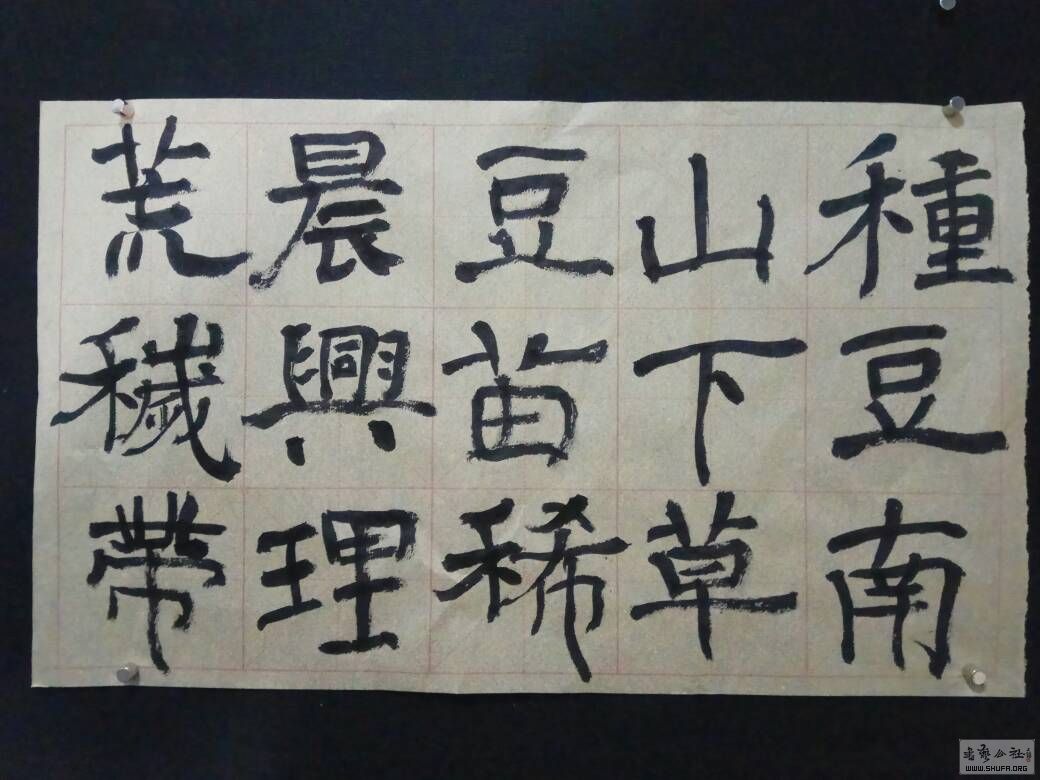 種豆南
山下草
豆苗稀
晨興理
荒穢帶
書藝公社
WWW.SHUFA.ORG